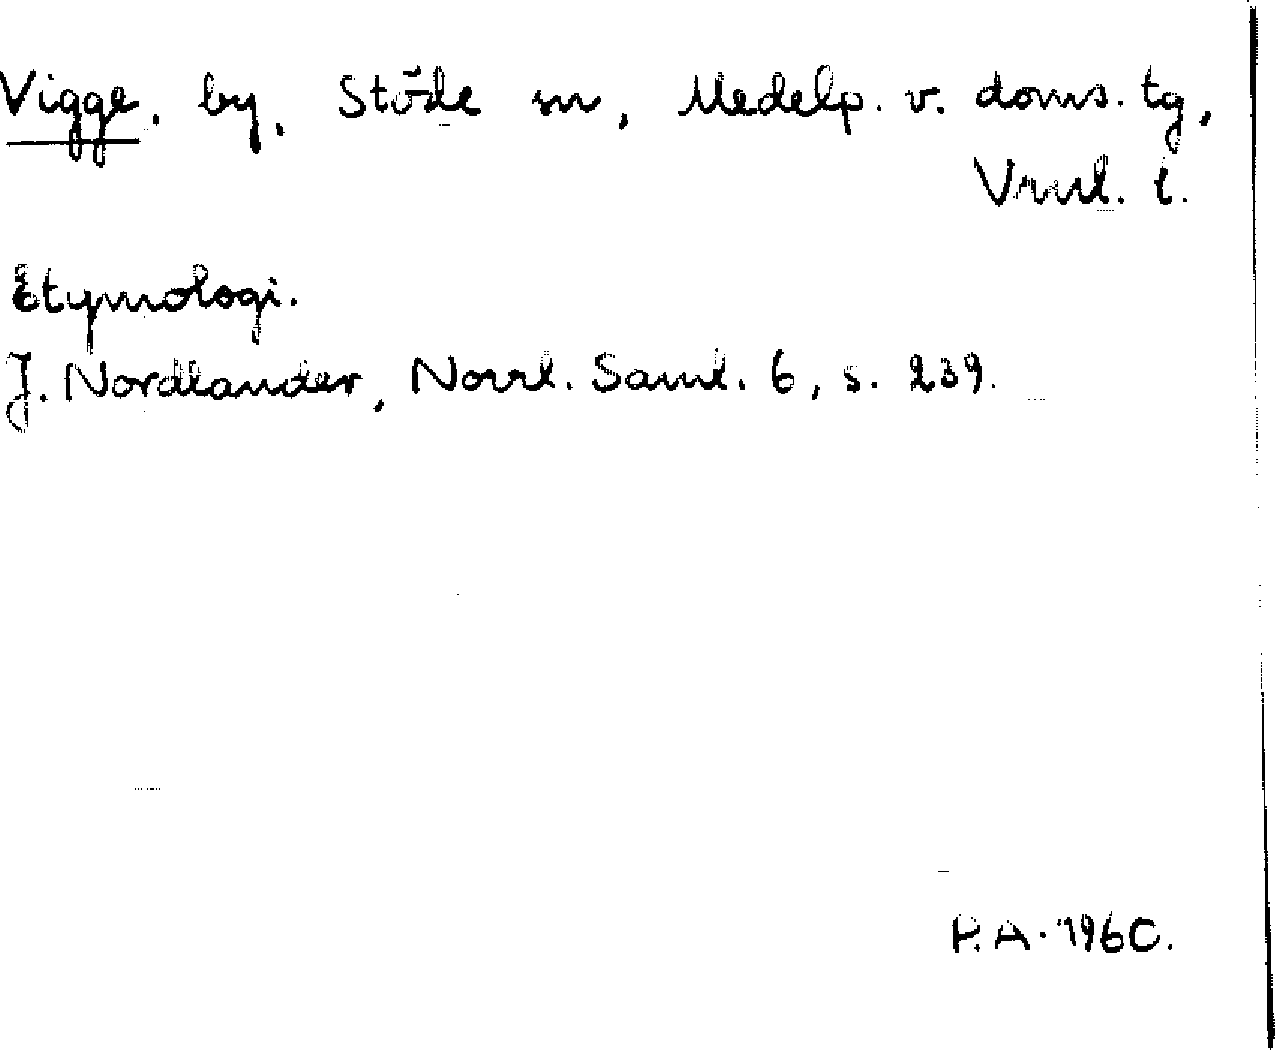 Vigge, by, Stöde sn, Medelp. v. doms. tg,
Vnrl. l.
Etymologi.
J. Nordlander, Norrl. Saml. 6, s. 239.
P.A. 1960.